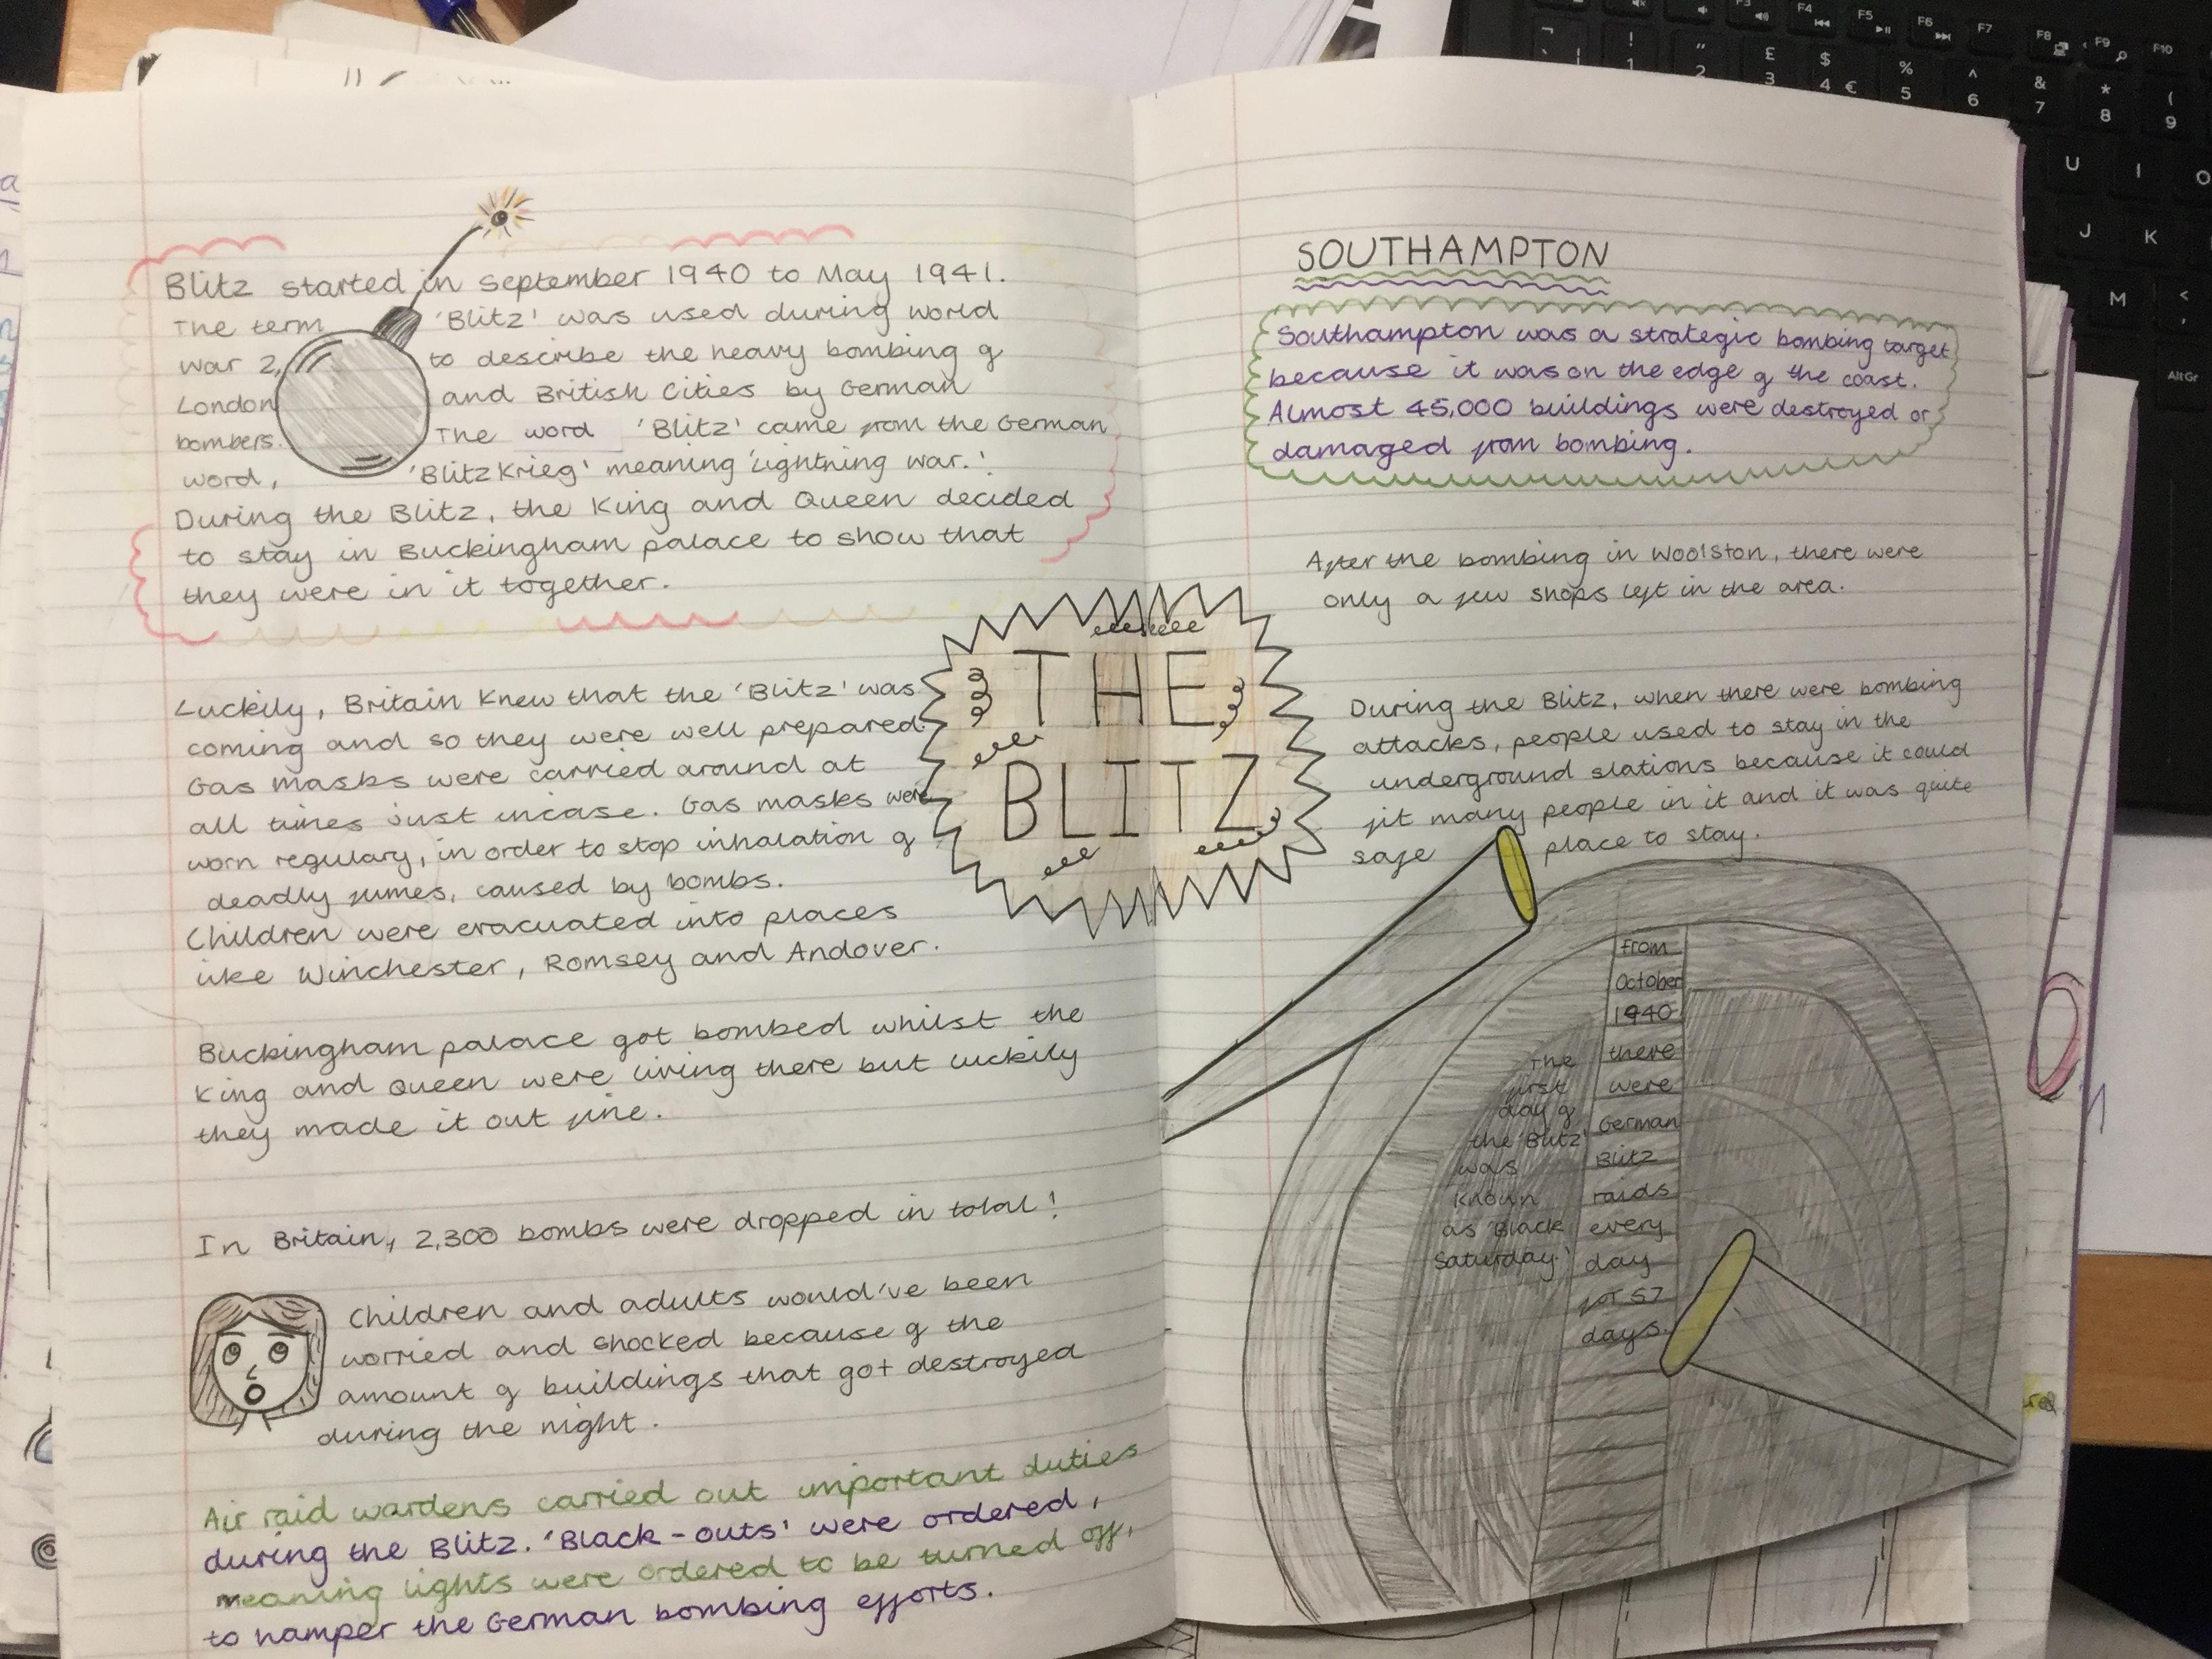 Blitz started in september 1940 to May 1941.
The term 'Blitz' was used during world
war 2, to describe the heavy bombing of
London and British Cities by German
bombers. The word 'Blitz' came from the German
word, 'Blitzkrieg' meaning 'Lightning war.'
During the Blitz, the King and Queen decided
to stay in Buckingham palace to show that
they were in it together.
Luckily, Britain knew that the 'Blitz' was
coming and so they were well prepared.
Gas masks were carried around at
all times just incase. Gas masks were
worn regulary, in order to stop inhalation of
deadly fumes, caused by bombs.
Children were evacuated into places
like Winchester, Romsey and Andover.
Buckingham palace got bombed whilst the
King and Queen were living there but luckily
they made it out fine.
In Britain, 2,300 bombs were dropped in total!
Children and adults would've been
worried and shocked because of the
amount of buildings that got destroyed
during the night.
Air raid wardens carried out important duties
during the Blitz. 'Black-outs' were ordered,
meaning lights were ordered to be turned off,
to hamper the German bombing efforts.
THE
BLITZ
SOUTHAMPTON
Southampton was a strategic bombing target
because it was on the edge of the coast.
Almost 45,000 buildings were destroyed or
damaged from bombing.
After the bombing in Woolston, there were
only a few shops left in the area.
During the Blitz, when there were bombing
attacks, people used to stay in the
underground stations because it could
fit many people in it and it was quite
safe place to stay.
The
first
day of
the 'Blitz'
was
known
as 'Black
Saturday.'
From
October
1940
there
were
German
Blitz
raids
every
day
for 57
days.
F3
F4
F5
F6
F7
F8
F9
F10
!
1
"
2
£
3
$
4 €
%
5
^
6
&
7
*
8
(
9
U
I
O
J
K
M
<
,
Alt Gr